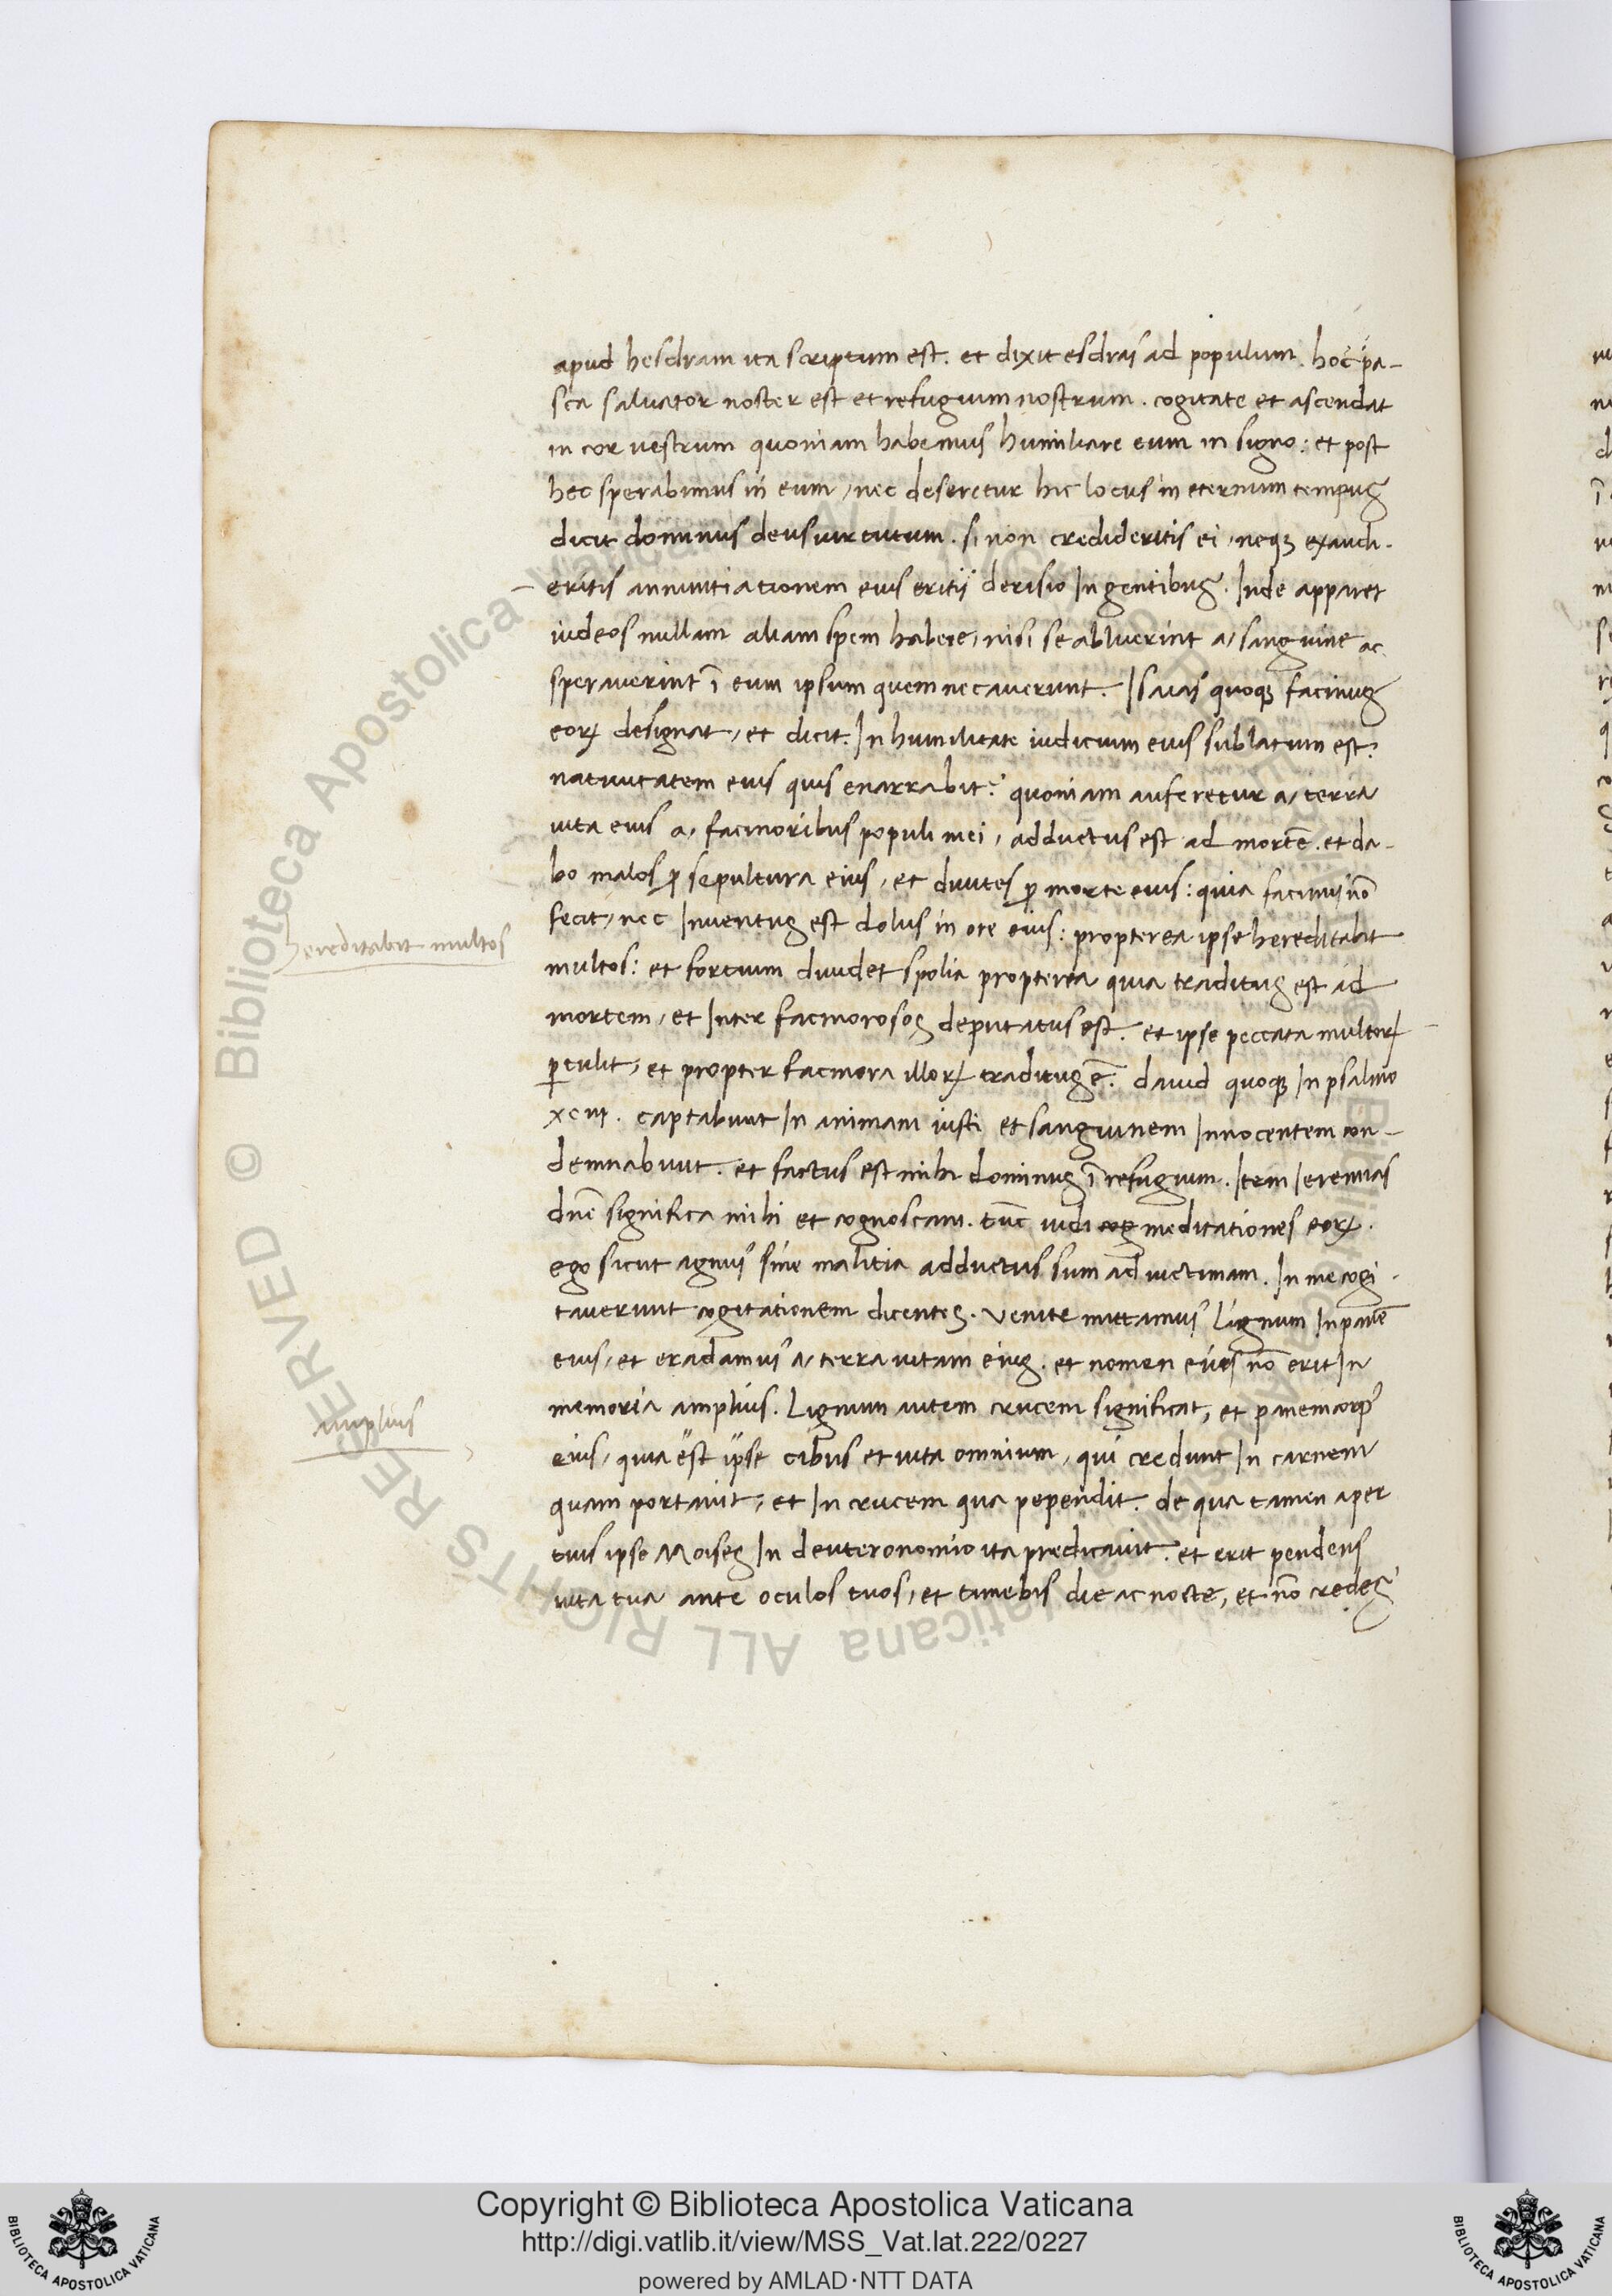 apud hesdram ita scriptum est. et dixit esdras ad populum. hoc pa-
sca saluator noster est et refugium nostrum. cogitate et ascendat
in cor uestrum quoniam habemus humiliare eum in signo: et post
hec sperabimus in eum, nec deseretur hic locus in eternum tempus
dicit dominus deus uirtutum. si non credideritis ei, neqꝫ exaudi-
eritis annuntiationem eius eritis derisio In gentibus. Inde apparet
iudeos nullam aliam spem habere, nisi se abluerint a, sanguine ac
sperauerint ī eum ipsum quem necauerunt. Isaias quoqꝫ facinus
eoꝝ designat, et dicit. In humilitate iudicium eius sublatum est.
natiuitatem eius quis enarrabit? quoniam auferetur a, terra
uita eius a, facinoribus populi mei, adductus est ad mortē. et da-
bo malos ꝓ sepultura eius, et diuites ꝓ morte eius: quia facinus nō
fecit, nec Inuentus est dolus in ore eius: propterea ipse hereditabit
hereditabit multos
multos: et fortium diuidet spolia propterea quia traditus est ad
mortem, et Inter facinorosos deputatus est. et ipse peccata multoꝝ
ꝑtulit, et propter facinora illoꝝ traditus ē. dauid quoqꝫ In psalmo
xciij. captabunt In animam iusti et sanguinem Innocentem con-
demnabunt. et factus est mihi dominus ī refugium. Item Ieremias
dn̄e significa mihi et cognoscam. tūc uidi meditationes eoꝝ.
ego sicut agnus sine malitia adductus sum ad uictimam. In me cogi-
tauerunt cogitationem dicentes. Venite mittamus lignum In panē
eius, et eradamus a, terra uitam eius. et nomen eius nō erit In
memoria amplius. Lignum autem crucem significat, et panem corpꝰ
amplius
eius, quia est ipse cibus et uita omnium, qui credunt In carnem
quam portauit, et In crucem qua pependit. de qua tamen aper
tius ipse Moises In deuteronomio ita predicauit. et erit pendens
uita tua ante oculos tuos, et timebis die ac nocte, et nō credes
Copyright © Biblioteca Apostolica Vaticana
http://digi.vatlib.it/view/MSS_Vat.lat.222/0227
powered by AMLAD·NTT DATA
BIBLIOTECA APOSTOLICA VATICANA
BIBLIOTECA APOSTOLICA VATICANA